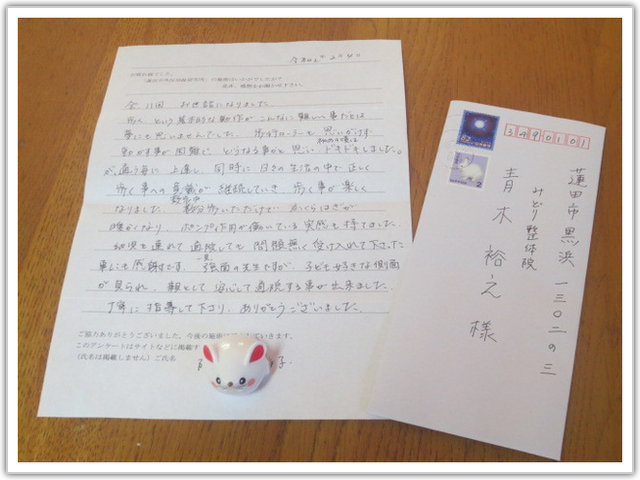 お疲れ様でした。
見本、感想をお聞かせ下さい。
全11回 お世話になりました。
歩くという基本的な動作がこんなに難しい事だとは
夢にも思いませんでした。
動かす事が困難で、どうなる事かと思い ドキドキしました。
が、通う毎に上達し、同時に日々の生活の中で正しく
歩く事への意識が継続していき 歩く事が楽しく
なりました。数分歩いただけで ふくらはぎが
暖かくなり、ポンプ作用が働いている実感も持てました。
幼児を連れて通院しても問題無く受け入れて下さった
事にも感謝です。強面の先生ですが、子ども好きな側面
が見られ、親として安心して通院する事が出来ました。
丁寧に指導して下さり、ありがとうございました。
ご協力ありがとうございました。今後の施術に
このアンケートはサイトなどに掲載す
(氏名は掲載しません)ご氏名
3490101
蓮田市黒浜一三〇二の三
みどり整体院
青木裕之様